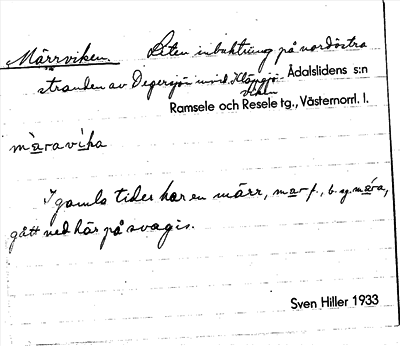 Märrviken. Liten inbuktning på nordöstra
stranden av Degersjön invid Klängsjö- Ådalslidens s:n
viken
Ramsele och Resele tg., Västernorrl. l.
màravika
I gamla tider har en märr, mar f., b. sg. mára,
gått ned här på svag is.
Sven Hiller 1933